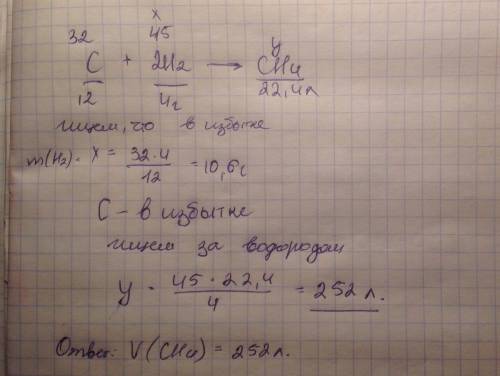 x
32 45 y
C + 2H₂ → CH₄
12 4г 22,4л
ищем, что в избытке
m(H₂) - x = 32·4 / 12 = 10,6г
C - в избытке
ищем за водородом
y = 45·22,4 / 4 = 252 л.
Ответ: V(CH₄) = 252л.